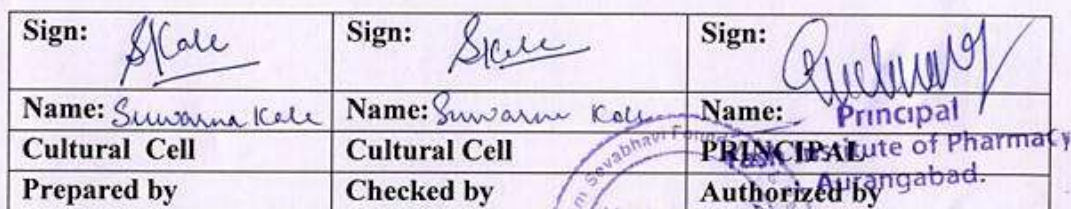 Sign: SKale Sign: SKale Sign:
Name: Suwarna Kale Name: Suwarna Kale Name: Principal
Cultural Cell Cultural Cell PRINCIPAL Institute of Pharmacy
Prepared by Checked by Authorized by Aurangabad.
Sevabhavi